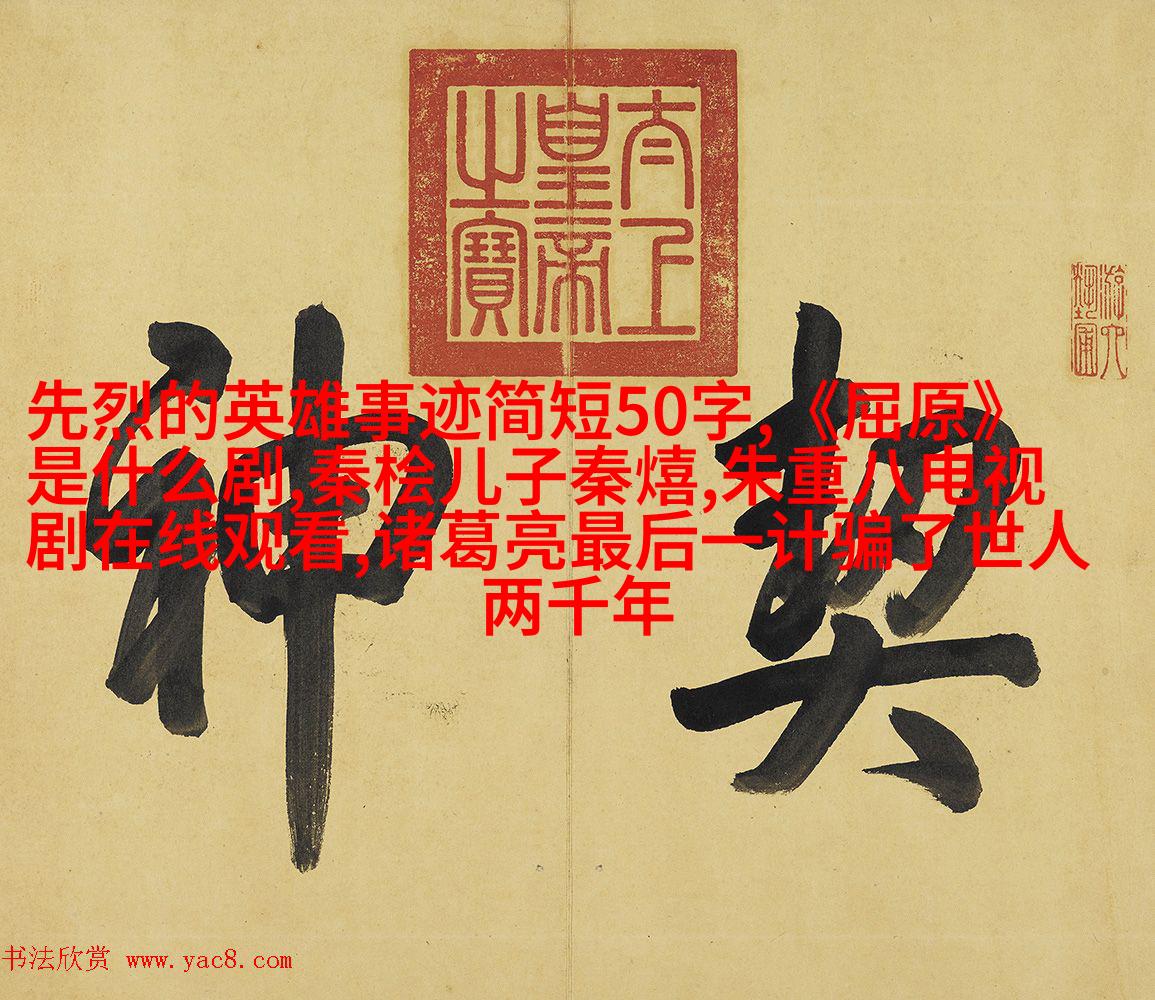 太上
皇帝
之寶
游六
藝圃
契神
先烈的英雄事迹简短50字,《屈原》
是什么剧,秦桧儿子秦熺,朱重八电视
剧在线观看,诸葛亮最后一计骗了世人
两千年
书法欣赏 www.yac8.com